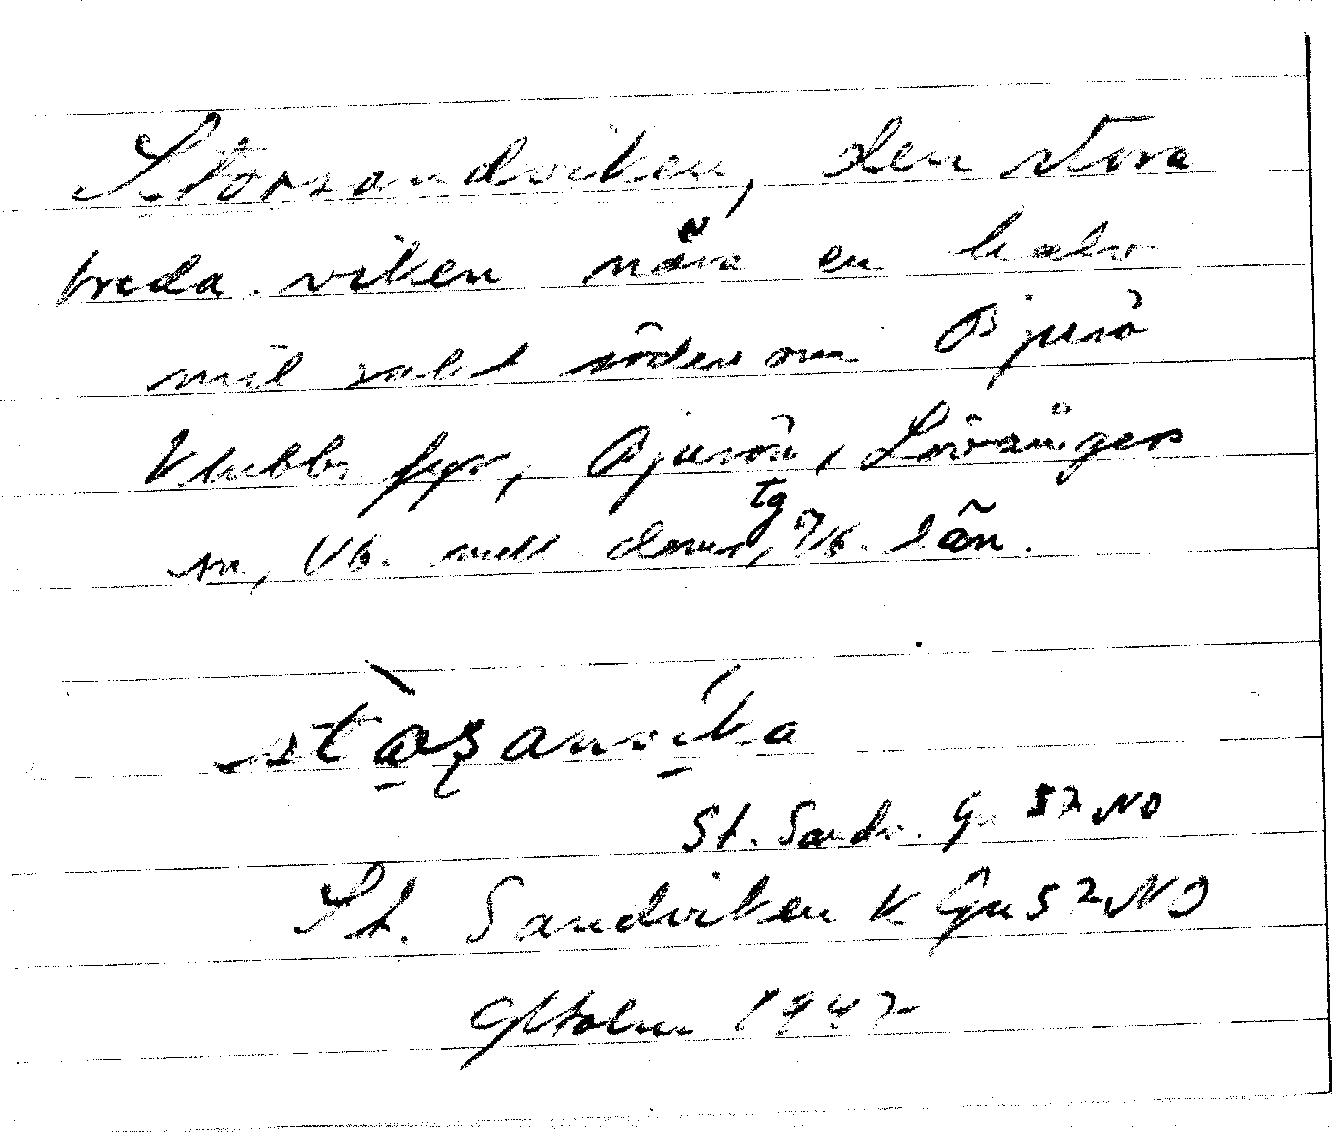 Storsandviken, den stora
breda viken nära en halv
mil rakt söder om Bjurö
Klubbs fyr, Bjurön, Lövångers
sn, Vb. mell. domstg, Vb. län.
stårsanvika
St. Sandv. Gu 52 NO
St. Sandviken K Gu 52 NO
GHolm 1947